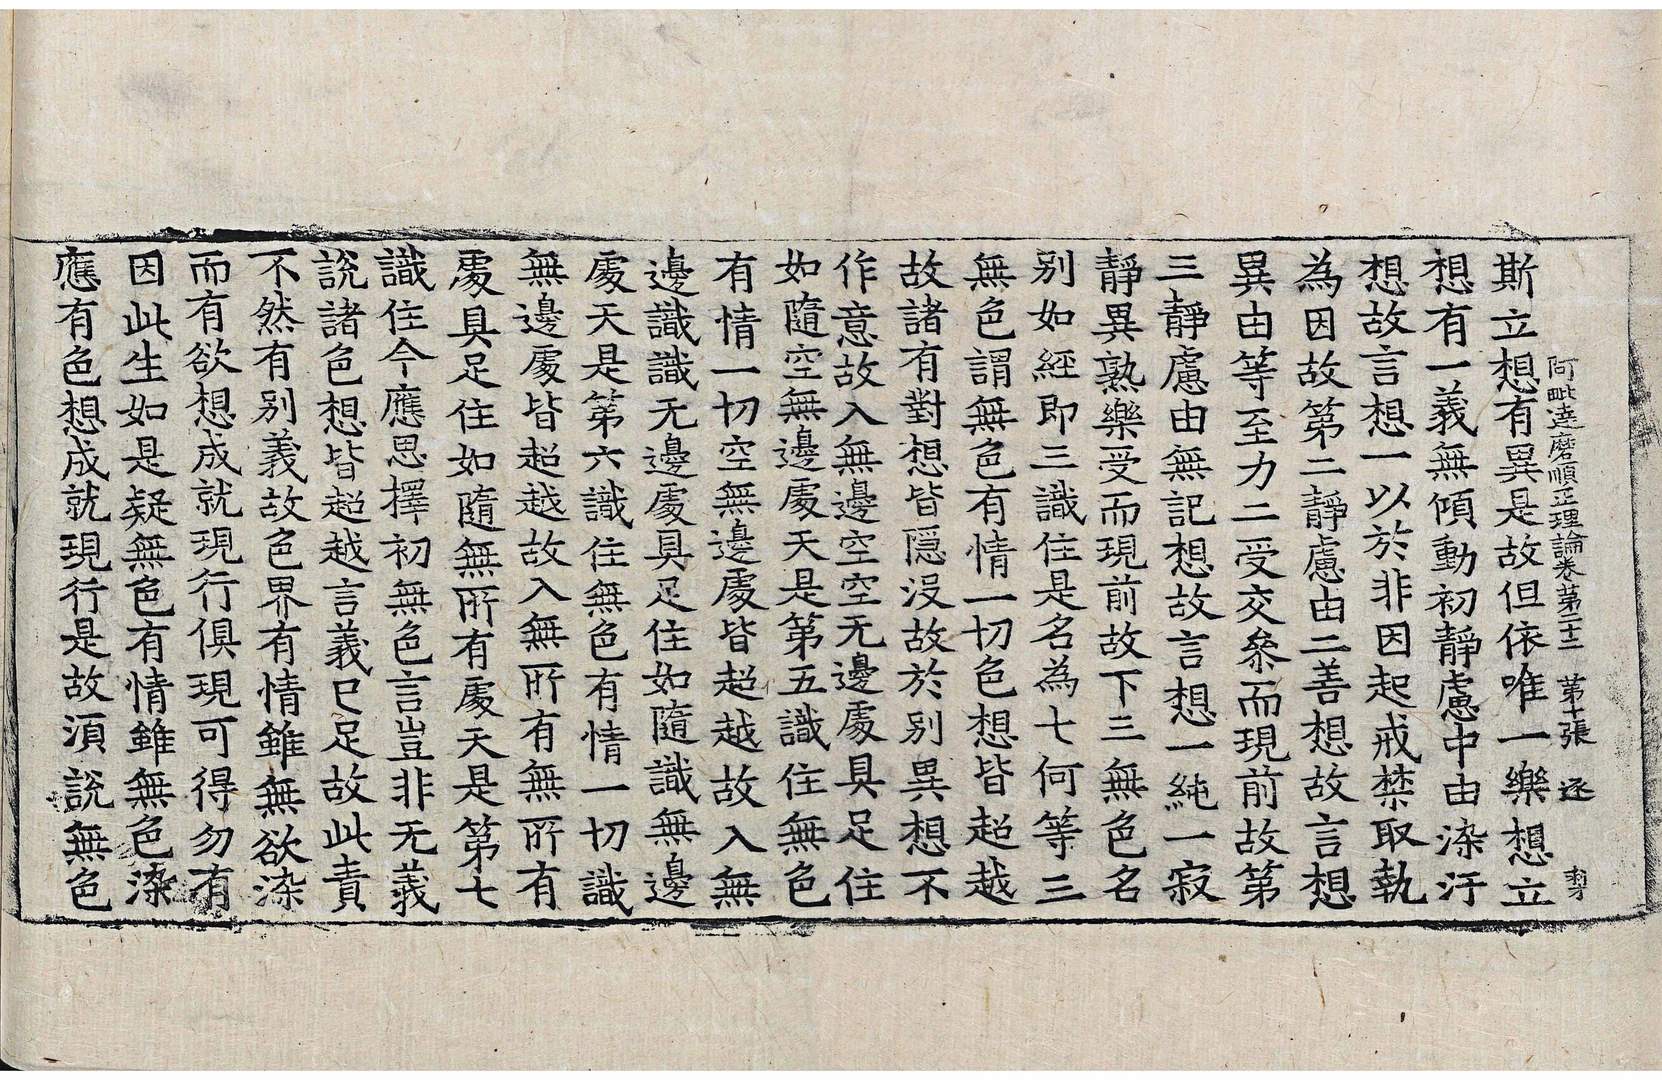 阿毗達磨順正理論卷第二十二 第十張 逐
斯立想有異是故但依唯一樂想立
想有一義無傾動初靜慮中由染汙
想故言想一以於非因起戒禁取執
為因故第二靜慮由二善想故言想
異由等至力二受交叅而現前故第
三靜慮由無記想故言想一純一寂
靜異熟樂受而現前故下三無色名
別如經即三識住是名為七何等三
無色謂無色有情一切色想皆超越
故諸有對想皆隱沒故於別異想不
作意故入無邊空空无邊處具足住
如隨空無邊處天是第五識住無色
有情一切空無邊處皆超越故入無
邊識識无邊處具足住如隨識無邊
處天是第六識住無色有情一切識
無邊處皆超越故入無所有無所有
處具足住如隨無所有處天是第七
識住今應思擇初無色言豈非无義
說諸色想皆超越言義已足故此責
不然有別義故色界有情雖無欲染
而有欲想成就現行俱現可得勿有
因此生如是疑無色有情雖無色染
應有色想成就現行是故須說無色